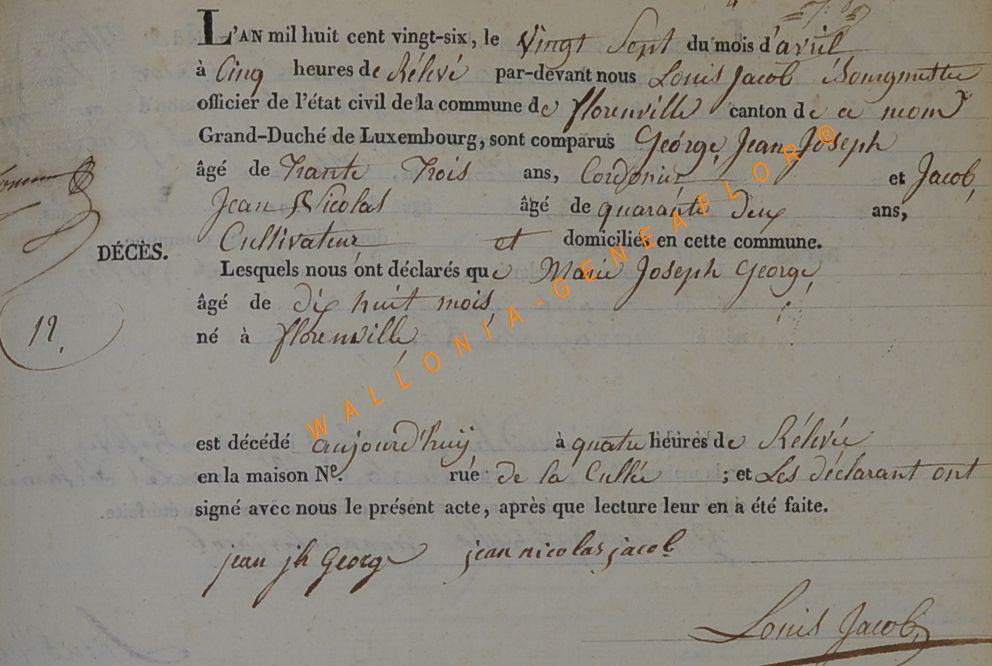 L'AN mil huit cent vingt-six, le Vingt Sept du mois d'avril
à Cinq heures de Rélevé par-devant nous Louis Jacob
officier de l'état civil de la commune de florenville canton de ce nom
Grand-Duché de Luxembourg, sont comparus George, Jean Joseph
âgé de Trante Trois ans, Cordonier et Jacob,
Jean Nicolas âgé de quarante deux ans,
DÉCÈS.
Cultivateur et domiciliés en cette commune.
Lesquels nous ont déclarés que Marie Joseph George,
âgé de dix huit mois,
12.
né à florenville
est décédé aujourd'huy à quatre heures de Rélevée
en la maison Nº. rue de la Cullée ; et Les déclarant ont
signé avec nous le présent acte, après que lecture leur en a été faite.
jean jh George jean nicolas jacob
Louis Jacob
WALLONIA-GENEAFLOR©